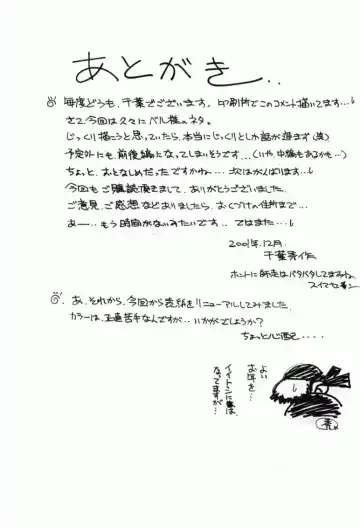 あとがき..
毎度どうも、千葉でございます。印刷所でこのコメント描いてます…
さて今回は久々にベル様のネタ。
じっくり描こうと思っていたら、本当にじっくりとしか話が進まず(笑)
予定外にも、前後編になってしまいそうです…(いや、中編もあるかも…)
ちょっと、おとなしめだったですかね… 次はがんばります…
今回もご購読頂きまして、ありがとうございました。
ご意見、ご感想などありましたら、おくづけの住所まで…
あー…もう時間がないみたいです.. ではまた…
2001年.12月.
千葉秀作
ホントに師走はバタバタしてますね。
スイマセン…
あ、それから、今回から表紙をリニューアルしてみました
カラーは、正直苦手なんですが…いかがでしょうか?
ちょっと心配....
よい
お年を…
イイトシに
なってますが…